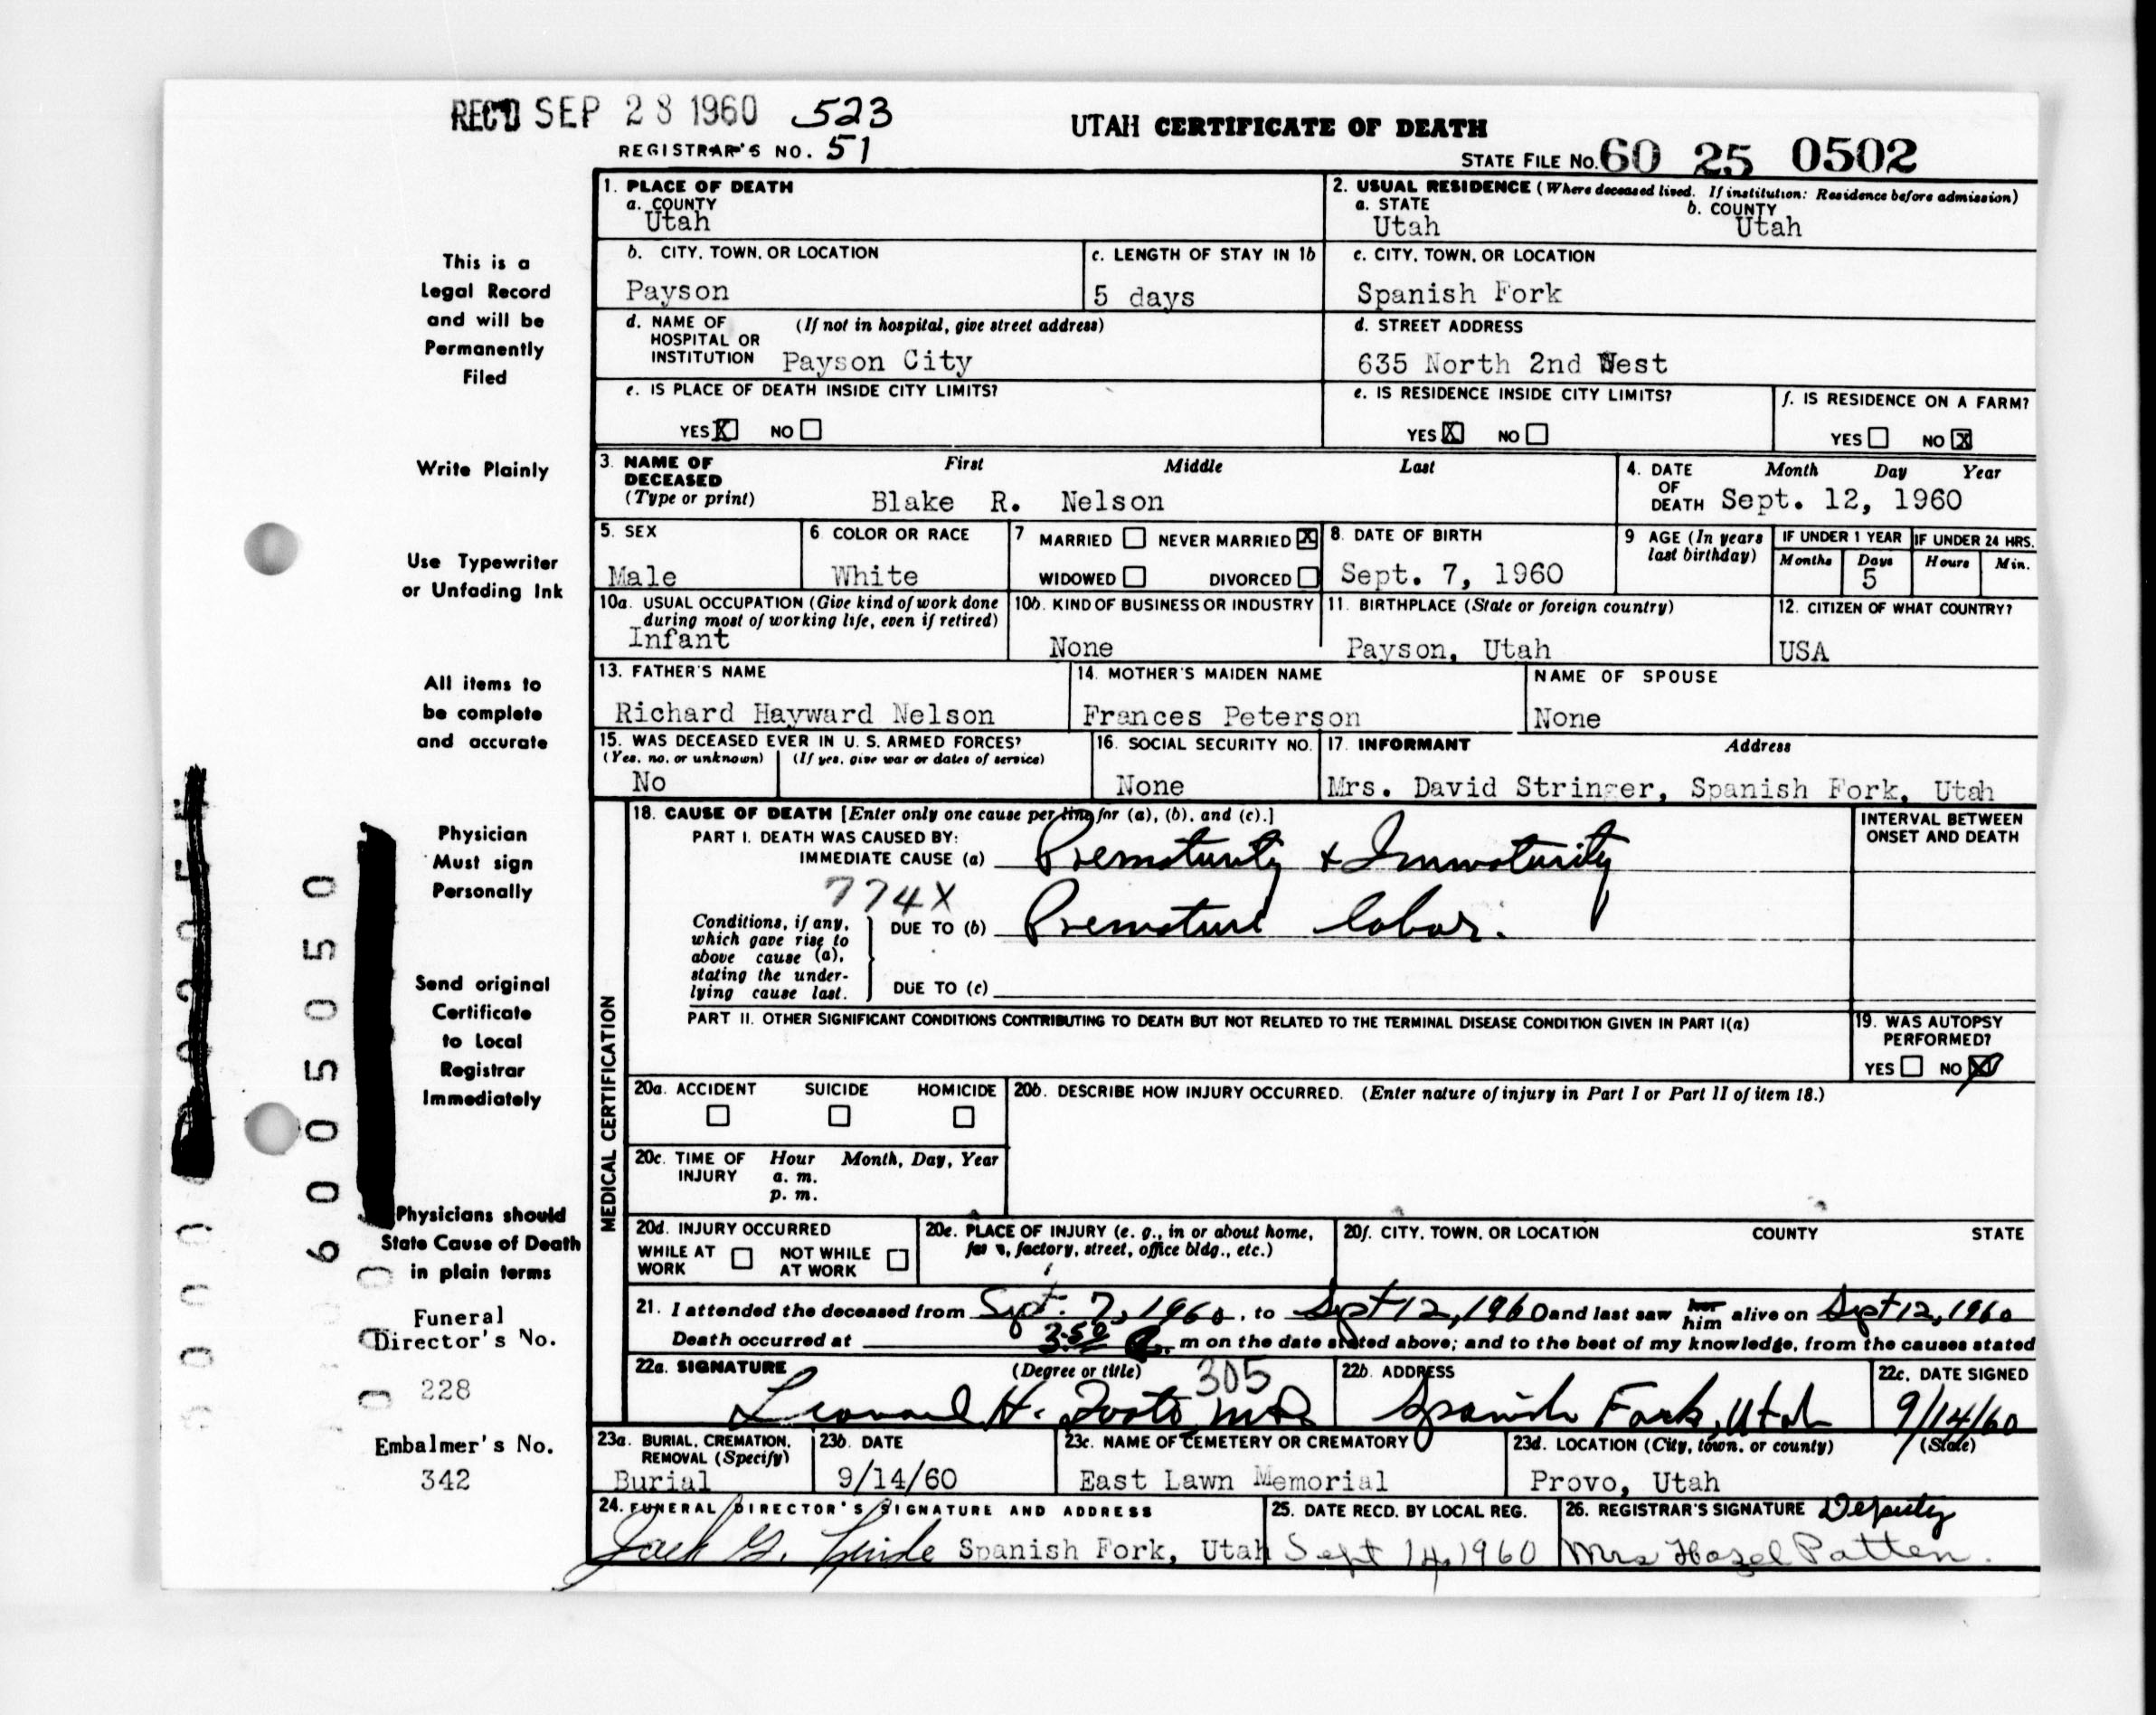 REC'D SEP 28 1960 523
UTAH CERTIFICATE OF DEATH
REGISTRAR'S NO. 51
STATE FILE NO. 60 25 0502
1. PLACE OF DEATH
a. COUNTY
Utah
2. USUAL RESIDENCE (Where deceased lived. If institution: Residence before admission)
a. STATE b. COUNTY
Utah Utah
b. CITY, TOWN, OR LOCATION
Payson
c. LENGTH OF STAY IN 1b
5 days
c. CITY, TOWN, OR LOCATION
Spanish Fork
d. NAME OF (If not in hospital, give street address)
HOSPITAL OR
INSTITUTION Payson City
d. STREET ADDRESS
635 North 2nd West
e. IS PLACE OF DEATH INSIDE CITY LIMITS?
YES X NO
e. IS RESIDENCE INSIDE CITY LIMITS?
YES X NO
f. IS RESIDENCE ON A FARM?
YES NO X
3. NAME OF First Middle Last
DECEASED
(Type or print) Blake R. Nelson
4. DATE Month Day Year
OF
DEATH Sept. 12, 1960
5. SEX
Male
6. COLOR OR RACE
White
7 MARRIED NEVER MARRIED X
WIDOWED DIVORCED
8. DATE OF BIRTH
Sept. 7, 1960
9 AGE (In years
last birthday)
IF UNDER 1 YEAR IF UNDER 24 HRS.
Months Days Hours Min.
5
10a. USUAL OCCUPATION (Give kind of work done
during most of working life, even if retired)
Infant
10b. KIND OF BUSINESS OR INDUSTRY
None
11. BIRTHPLACE (State or foreign country)
Payson, Utah
12. CITIZEN OF WHAT COUNTRY?
USA
13. FATHER'S NAME
Richard Hayward Nelson
14. MOTHER'S MAIDEN NAME
Frances Peterson
NAME OF SPOUSE
None
15. WAS DECEASED EVER IN U. S. ARMED FORCES?
(Yes, no, or unknown) (If yes, give war or dates of service)
No
16. SOCIAL SECURITY NO.
None
17. INFORMANT Address
Mrs. David Stringer, Spanish Fork, Utah
MEDICAL CERTIFICATION
18. CAUSE OF DEATH [Enter only one cause per line for (a), (b), and (c).]
PART I. DEATH WAS CAUSED BY:
IMMEDIATE CAUSE (a) Prematurity & Immaturity
774X
Conditions, if any,
which gave rise to
above cause (a),
stating the under-
lying cause last.
DUE TO (b) Premature labor.
DUE TO (c)
INTERVAL BETWEEN
ONSET AND DEATH
PART II. OTHER SIGNIFICANT CONDITIONS CONTRIBUTING TO DEATH BUT NOT RELATED TO THE TERMINAL DISEASE CONDITION GIVEN IN PART I(a)
19. WAS AUTOPSY
PERFORMED?
YES NO X
20a. ACCIDENT SUICIDE HOMICIDE
20b. DESCRIBE HOW INJURY OCCURRED. (Enter nature of injury in Part I or Part II of item 18.)
20c. TIME OF Hour Month, Day, Year
INJURY a. m.
p. m.
20d. INJURY OCCURRED
WHILE AT NOT WHILE
WORK AT WORK
20e. PLACE OF INJURY (e. g., in or about home,
factory, street, office bldg., etc.)
20f. CITY, TOWN, OR LOCATION COUNTY STATE
21. I attended the deceased from Sept. 7, 1960, to Sept 12, 1960 and last saw her him alive on Sept 12, 1960
Death occurred at 3:50 m on the date stated above; and to the best of my knowledge, from the causes stated
22a. SIGNATURE (Degree or title) 305
Leonard H. MD
22b. ADDRESS
Spanish Fork, Utah
22c. DATE SIGNED
9/14/60
23a. BURIAL, CREMATION,
REMOVAL (Specify)
Burial
23b. DATE
9/14/60
23c. NAME OF CEMETERY OR CREMATORY
East Lawn Memorial
23d. LOCATION (City, town, or county) (State)
Provo, Utah
24. FUNERAL DIRECTOR'S SIGNATURE AND ADDRESS
Jack G. Spanish Fork, Utah
25. DATE RECD. BY LOCAL REG.
Sept 14, 1960
26. REGISTRAR'S SIGNATURE Deputy
Mrs Hazel Patten.
This is a
Legal Record
and will be
Permanently
Filed
Write Plainly
Use Typewriter
or Unfading Ink
All items to
be complete
and accurate
Physician
Must sign
Personally
Send original
Certificate
to Local
Registrar
Immediately
Physicians should
State Cause of Death
in plain terms
Funeral
Director's No.
228
Embalmer's No.
342
600505050